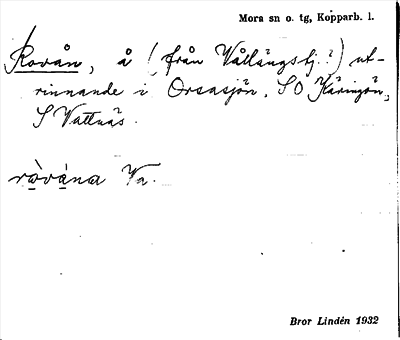 Mora sn o. tg, Kopparb. l.
Rovån, å (från Vållångstj.?) ut-
rinnande i Orsasjön, SO Käringön,
S Vattnäs.
ròvána Va.
Bror Lindén 1932